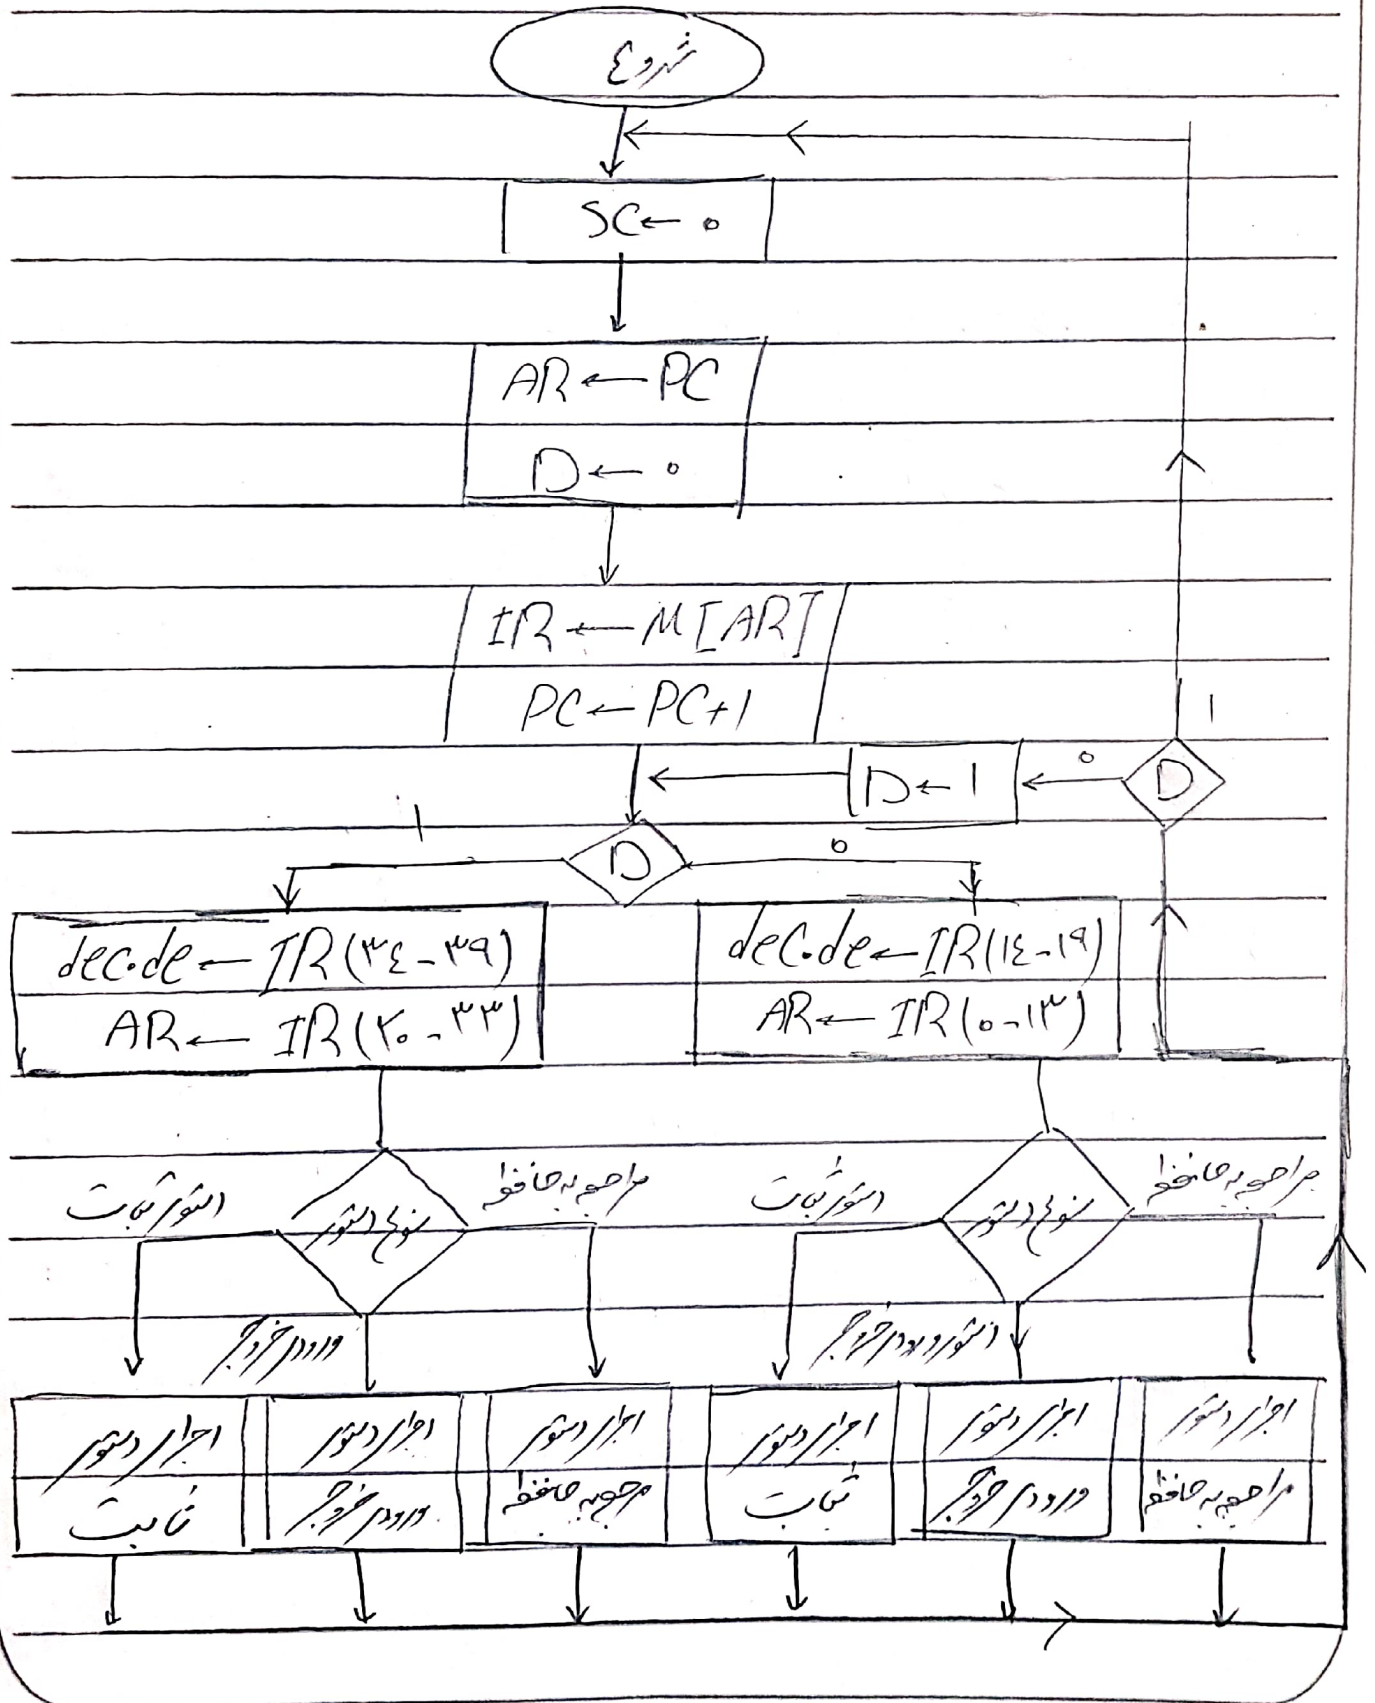 شروع
SC ← ۰
AR ← PC
D ← ۰
IR ← M[AR]
PC ← PC+1
1
D ← 1
۰
D
1
D
۰
decode ← IR(۳٤-۳۹)
AR ← IR(۲۰-۳۳)
decode ← IR(۱٤-۱۹)
AR ← IR(۰-۱۳)
دستور ثبات
نوع دستور
مراجعه به حافظه
دستور ثبات
نوع دستور
مراجعه به حافظه
ورودی خروجی
دستور ورودی خروجی
اجرای دستور
ثابت
اجرای دستور
ورودی خروجی
اجرای دستور
مرجعه به حافظه
اجرای دستور
ثبات
اجرای دستور
ورودی خروجی
اجرای دستور
مراجعه به حافظه